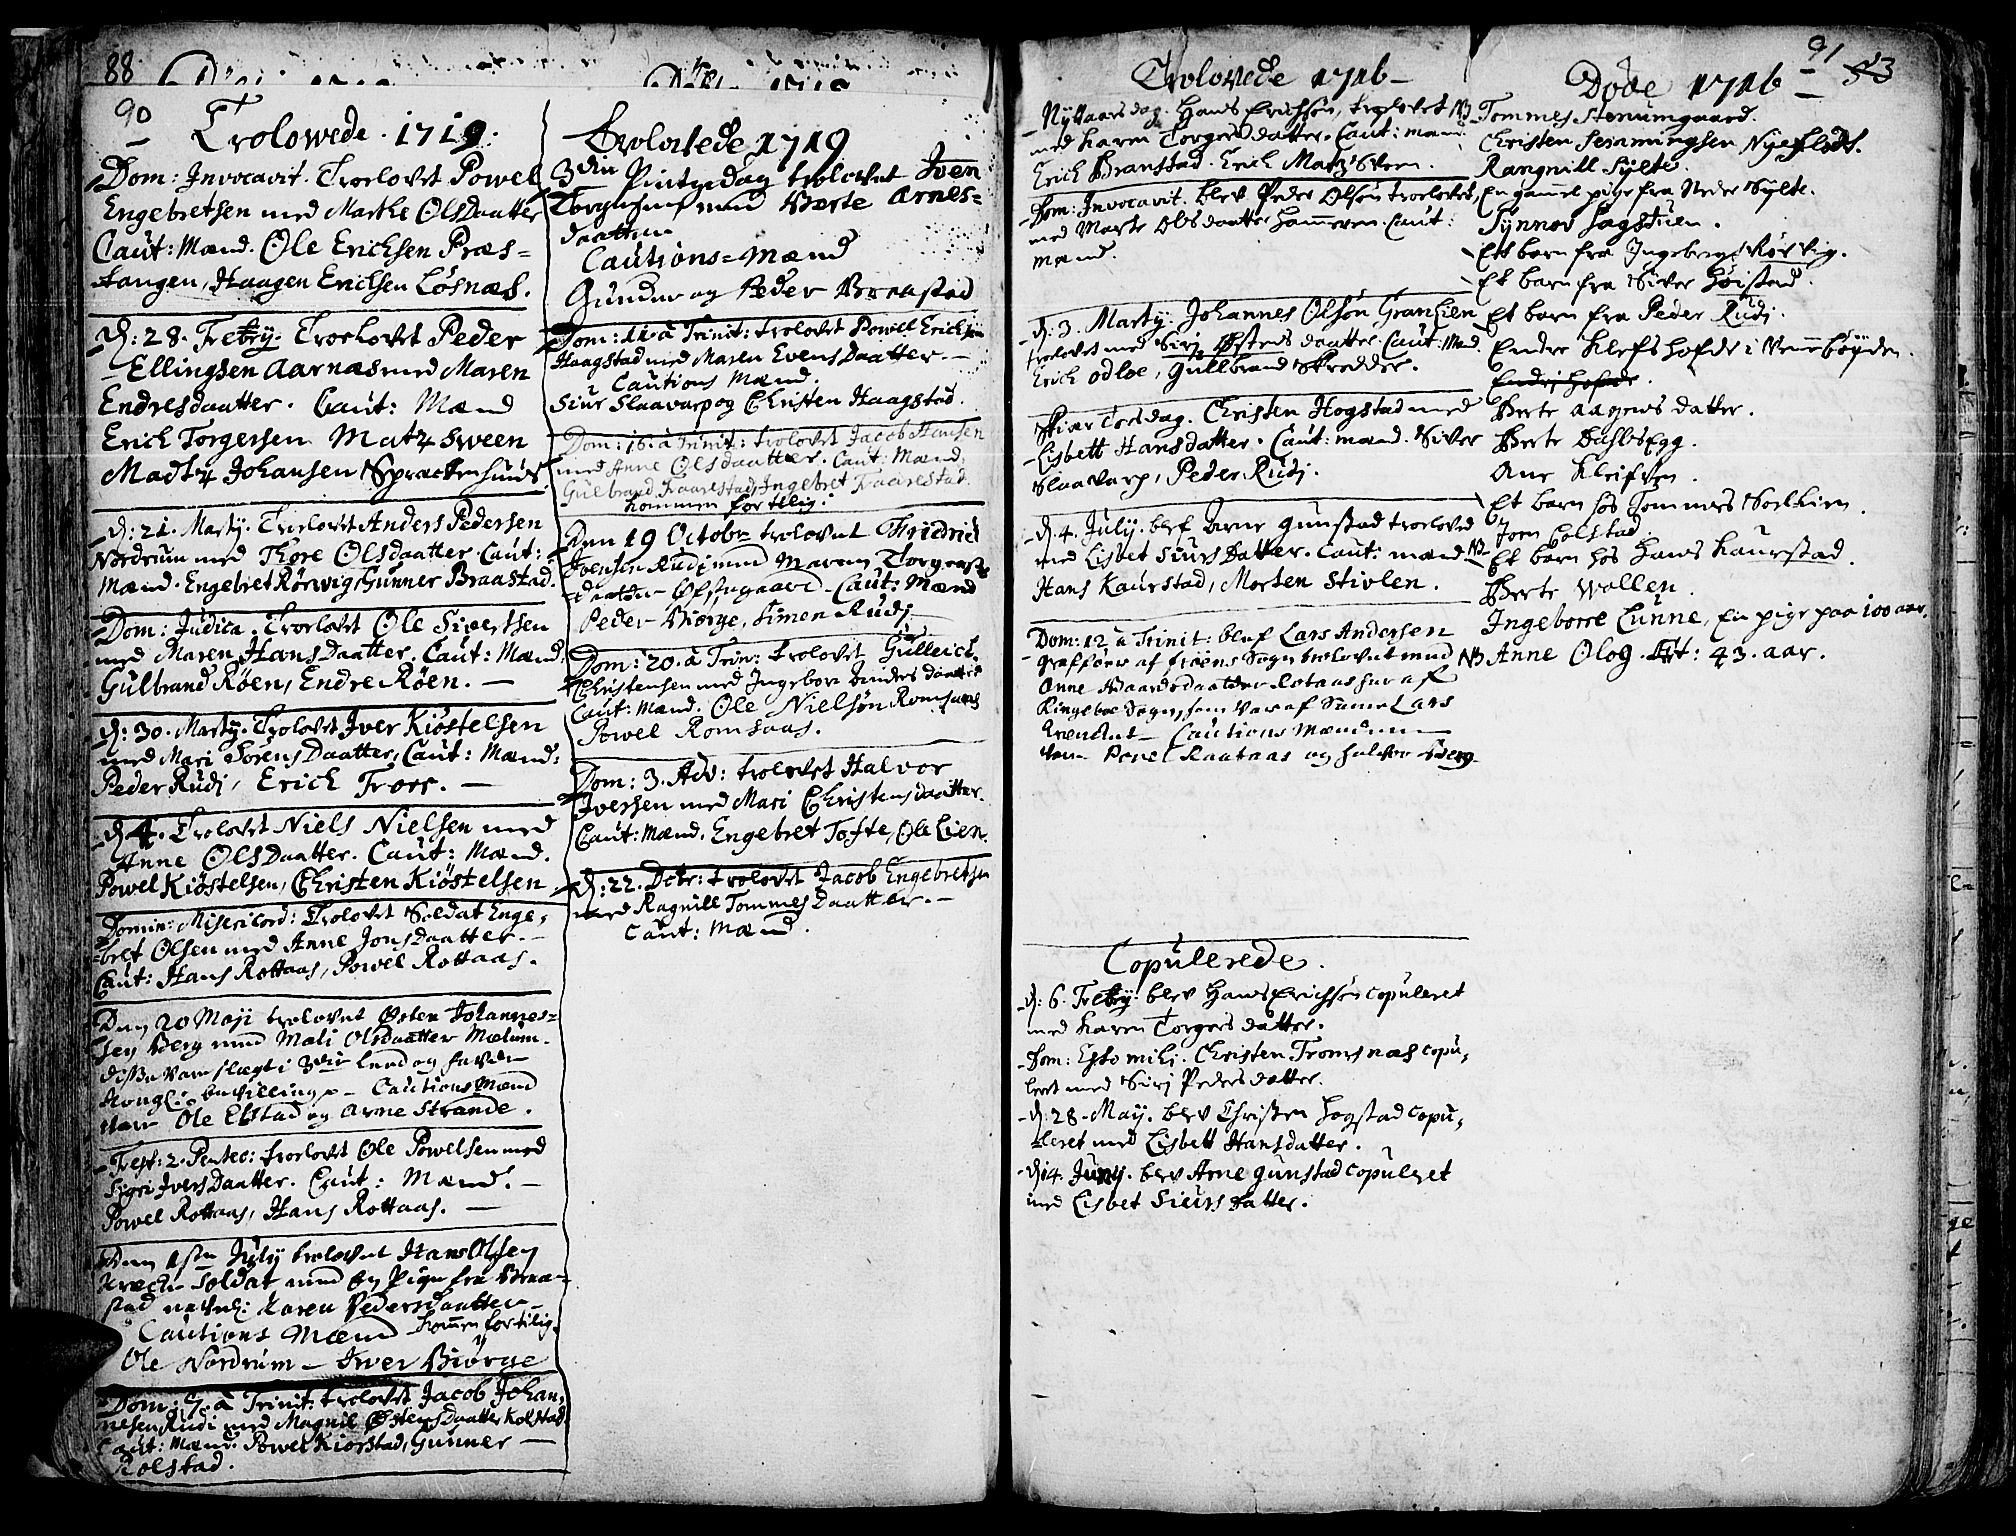 88
90
Trolowede . 1719.
Dom: Invocavit. Troelovet Powel
Engebretsen med Marthe OlsDaatter
Caut: Mænd. Ole Erichsen Præs-
tangen, Haagen Erichsen Løsnæs.
D: 28. Febry. Troelovet Peder
Ellingsen Aarnæs med Maren
Endresdaatter. Caut: Mænd
Erich Torgersen Matz Sween
Madtz Johansen Sprækenhuus.
D: 21. Marty. Troelovet Anders Pedersen
Nordrum med Thore OlsDaatter. Caut:
Mænd. Engebret Rörwig, Gunner Braastad.
Dom: Judica. Troelovet Ole Sivertsen
med Maren HansDaatter. Caut: Mænd.
Gulbrand Röen, Endre Röen. —
D: 30. Marty. Trolovet Iver Kiöstelsen
med Mari SörensDaatter, Caut: Mænd:
Peder Rudj, Erich Troer. —
D 4. Trolovet Niels Nielsen med
Anne OlsDaatter. Caut: Mænd.
Powel Kiöstelsen, Christen Kiöstelsen.
Domin: Misericord: Trolovet Soldat Enge-
bret Olsen med Anne JonsDaatter. —
Caut: Hans Rottaas, Powel Rottaas.
Den 20 Maji trolovet Østen Johannes-
sen Berg med Mali Olsdaatter Mælum.
disse vare slægt i 3die Leed og havde
Kongl: bevillinge — Cautions Mænd
vare Ole Elstad og Arne Strande.
Fest: 2. Pentec: trolovet Ole Powelsen med
Sigri IversDaatter. Caut: Mænd. —
Powel Rottaas, Hans Rottaas. —
Den 1ste July trolovet Hans Olsen
soldat med en Pige fra Braa-
stad navnl: Karen Pedersdaatter
Cautions Mænd kommen for tilig.
Ole Nordrum — Iwer Biörge
Dom: 7. a Trinit: trolovet Jacob Johan-
nesen Rudi med Magnil ØstensDaatter Kolstad
Caut: Mænd. Powel Kiorstad, Gunner —
Kolstad.
Trolovede 1719
3die Pintzedag trolovet Iven
Torgersen med Berte Arnes-
daatter
Cautions-Mænd
Gunder og Peder Braastad
Dom: 11. a Trinit: trolovet Powel Erichsen
Haagstad med Maren EvensDaatter. —
Cautions Mænd.
Siur Slaavarp og Christen Haagstad.
Dom: 16. a Trinit: trolovet Jacob Hansen
med Anne OlsDaatter. Caut: Mænd.
Gulbrand Kaarestad, Ingebret Kaarestad.
kommen for tilig.
Den 19 October trolovet Fridrich
Iversen Rudj med Maren Torgers-
daatter Ofsengaard. Caut: Mænd
Peder Biörge, Simen Rudj
Dom: 20. a Trin: trolovet Gulleich
Christensen med Ingebor Andersdaatter
Caut: Mænd. Ole Nielsön Romsaas
Powel Romsaas.
Dom: 3. Adv: trolovet Halvor
Iversen med Mari ChristensDaatter.
Caut: Mænd. Engebret Tofte, Ole Lien.
D: 22. Dcbr: trolovet Jacob Engebretsen
med Ragnill TommesDaatter. —
Caut: Mænd.
Trolovede 1716 —
Nyttaarsdag. Hans Erichsön, trolovet
med Karen Torgersdatter. Caut: mænd.
Erich Branstad. Erich Matz Sveen.
Dom: Invocavit. blev Peder Olsön troelovet,
med Marte Olsdaatter Hammeren. Caut:
mænd.
D: 3. Marty: Johannes Olsön Granlien
trolovet med Sirj Østensdaatter. Caut: Mænd.
Erich Odloe, Gullbrand Skredder.
Skiær Torsdag. Christen Hogstad med
Lisbett Hansdatter. Caut: mænd. Siver
Slaavarp, Peder Rudj.
D. 4. July. blef Arne Gunstad troeloved
med Lisbet SiursDatter. Caut: mænd
Hans Kaurstad, Morten Stivlen.
Dom: 12. a Trinit: blef Lars Andersen
Graffoer af froens Sogn trolovet med
Anne Rotaas her af
Ringeboe Sogn, som var af Samme Lars
Cautions Mændene
vare Povel Raataas og Halvor Berg
Copulerede.
D: 6. Febry. blev Hans Erichsön copuleret
med Karen Torgersdatter.
Dom: Esto mihi. Christen Tromsnæs copu-
leret med Sirj Pedersdatter.
D: 28. May. blev Christen Hogstad copu-
leret med Lisbett Hansdatter.
D: 4. July. blev Arne Gunstad copuleret
med Lisbet Sieurs Datter.
91
53
Døde 1716 —
NB Tommes Stenumgaard.
Christen Hemmingsen Nyeflodt.
Rangnill Sylte.
En gammel pige fra Neder Sylte.
Synnov Hagstuen.
Ett barn fra Ingeberg Rörvig.
Et barn fra Siver Höistad.
Et barn fra Peder Rudj.
Endre Klefshofde i Vennebögden.
Endre hofde.
Berte Aagensdatter.
Berte Dahlsegg.
Ane Kleifven.
Et barn hos Tommes Sorlien.
Joen Colstad.
NB Et barn hos Hans Kaurstad.
Berte Wollen.
Ingeborre Lunne, En pige paa 100 aar.
NB Anne Olog. Æt: 43. aar.